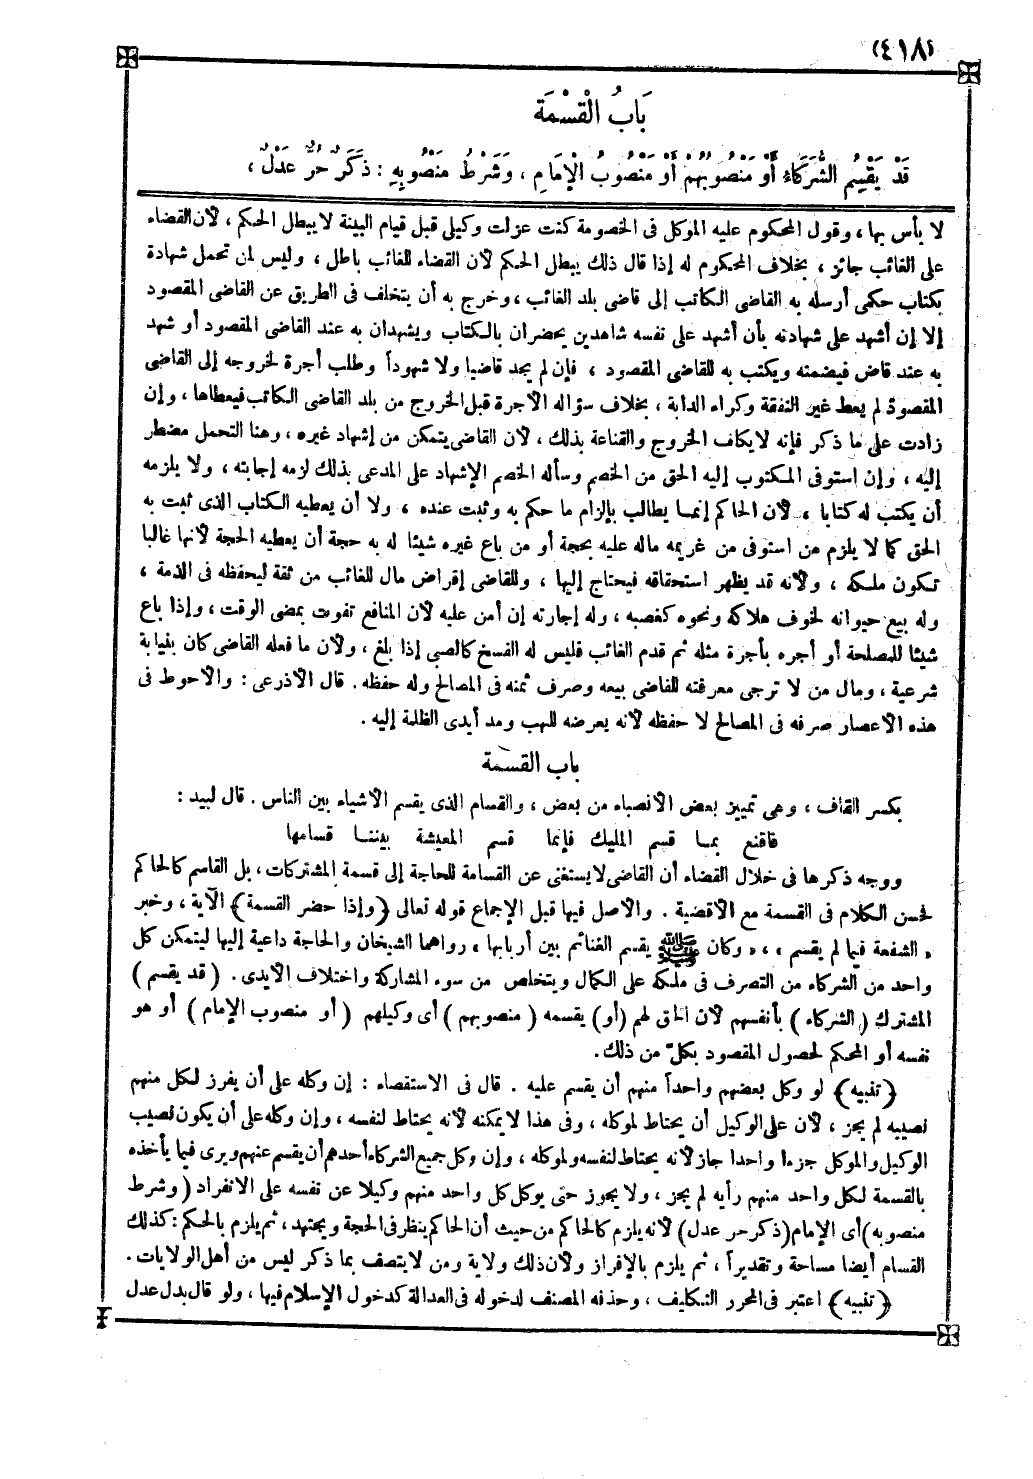 (٤١٨)
بَابُ الْقِسْمَةِ
قَدْ يَقْسِمُ الشُّرَكَاءُ أَوْ مَنْصُوبُهُمْ أَوْ مَنْصُوبُ الْإِمَامِ ، وَشَرْطُ مَنْصُوبِهِ : ذَكَرٌ حُرٌّ عَدْلٌ ،
لا بأس بها ، وقول المحكوم عليه الموكل فى الخصومة كنت عزلت وكيلى قبل قيام البينة لا يبطل الحكم ، لأن القضاء
على الغائب جائز ، بخلاف المحكوم له إذا قال ذلك يبطل الحكم لأن القضاء للغائب باطل ، وليس لمن تحمل شهادة
بكتاب حكمى أرسله به القاضى الكاتب إلى قاضى بلد الغائب ، وخرج به أن يتخلف فى الطريق عن القاضى المقصود
إلا إن أشهد على شهادته بأن أشهد على نفسه شاهدين يحضران بالكتاب ويشهدان به عند القاضى المقصود أو شهد
به عند قاض فيضمنه ويكتب به للقاضى المقصود ، فإن لم يجد قاضيا ولا شهوداً وطلب أجرة لخروجه إلى القاضى
المقصود لم يعط غير النفقة وكراء الدابة ، بخلاف سؤاله الأجرة قبل الخروج من بلد القاضى الكاتب فيعطاها ، وإن
زادت على ما ذكر فإنه لا يكلف الخروج والقناعة بذلك ، لأن القاضى يتمكن من إشهاد غيره ، وهنا التحمل مضطر
إليه ، وإن استوفى المكتوب إليه الحق من الخصم وسأله الخصم الإشهاد على المدعى بذلك لزمه إجابته ، ولا يلزمه
أن يكتب له كتابا ، لأن الحاكم إنما يطالب بإلزام ما حكم به وثبت عنده ، ولا أن يعطيه الكتاب الذى ثبت به
الحق كما لا يلزم من استوفى من غريمه ماله عليه بحجة أو من باع غيره شيئا له به حجة أن يعطيه الحجة لأنها غالبا
تكون ملكه ، ولأنه قد يظهر استحقاقه فيحتاج إليها ، وللقاضى إقراض مال للغائب من ثقة ليحفظه فى الذمة ،
وله بيع حيوانه لخوف هلاكه ونحوه كغصبه ، وله إجارته إن أمن عليه لأن المنافع تفوت بمضى الوقت ، وإذا باع
شيئا للمصلحة أو أجره بأجرة مثله ثم قدم الغائب فليس له الفسخ كالصبى إذا بلغ ، ولأن ما فعله القاضى كان بنيابة
شرعية ، ومال من لا ترجى معرفته للقاضى بيعه وصرف ثمنه فى المصالح وله حفظه . قال الأذرعى : والأحوط فى
هذه الأعصار صرفه فى المصالح لا حفظه لأنه يعرضه للنهب ومد أيدى الظلمة إليه .
باب القسمة
بكسر القاف ، وهى تمييز بعض الأنصباء من بعض ، والقسام الذى يقسم الأشياء بين الناس . قال لبيد :
فاقنع بما قسم المليك فإنما قسم المعيشة بيننا قسامها
ووجه ذكرها فى خلال القضاء أن القاضى لا يستغنى عن القسامة للحاجة إلى قسمة المشتركات ، بل القاسم كالحاكم
فحسن الكلام فى القسمة مع الأقضية . والأصل فيها قبل الإجماع قوله تعالى ﴿وإذا حضر القسمة﴾ الآية ، وخبر
« الشفعة فيما لم يقسم » ، « وكان ﷺ يقسم الغنائم بين أربابها » رواهما الشيخان والحاجة داعية إليها ليتمكن كل
واحد من الشركاء من التصرف فى ملكه على الكمال ويتخلص من سوء المشاركة واختلاف الأيدى . ( قد يقسم )
المشترك ( الشركاء ) بأنفسهم لأن الحق لهم (أو) يقسمه ( منصوبهم ) أى وكيلهم ( أو منصوب الإمام ) أو هو
نفسه أو المحكم لحصول المقصود بكل من ذلك .
﴿ تنبيه ﴾ لو وكل بعضهم واحداً منهم أن يقسم عليه . قال فى الاستقصاء : إن وكله على أن يفرز لكل منهم
نصيبه لم يجز ، لأن على الوكيل أن يحتاط لموكله ، وفى هذا لا يمكنه لأنه يحتاط لنفسه ، وإن وكله على أن يكون نصيب
الوكيل والموكل جزءا واحدا جاز لأنه يحتاط لنفسه ولموكله ، وإن وكل جميع الشركاء أحدهم أن يقسم عنهم ويرى فيما يأخذه
بالقسمة لكل واحد منهم رأيه لم يجز ، ولا يجوز حتى يوكل كل واحد منهم وكيلا عن نفسه على الانفراد ( وشرط
منصوبه ) أى الإمام ( ذكر حر عدل ) لأنه يلزم كالحاكم من حيث أن الحاكم ينظر فى الحجة ويجتهد ، ثم يلزم بالحكم : كذلك
القسام أيضا مساحة وتقديراً ، ثم يلزم بالإفراز ولأن ذلك ولاية ومن لا يتصف بما ذكر ليس من أهل الولايات .
﴿ تنبيه ﴾ اعتبر فى المحرر التكليف ، وحذفه المصنف لدخوله فى العدالة كدخول الإسلام فيها ، ولو قال بدل عدل